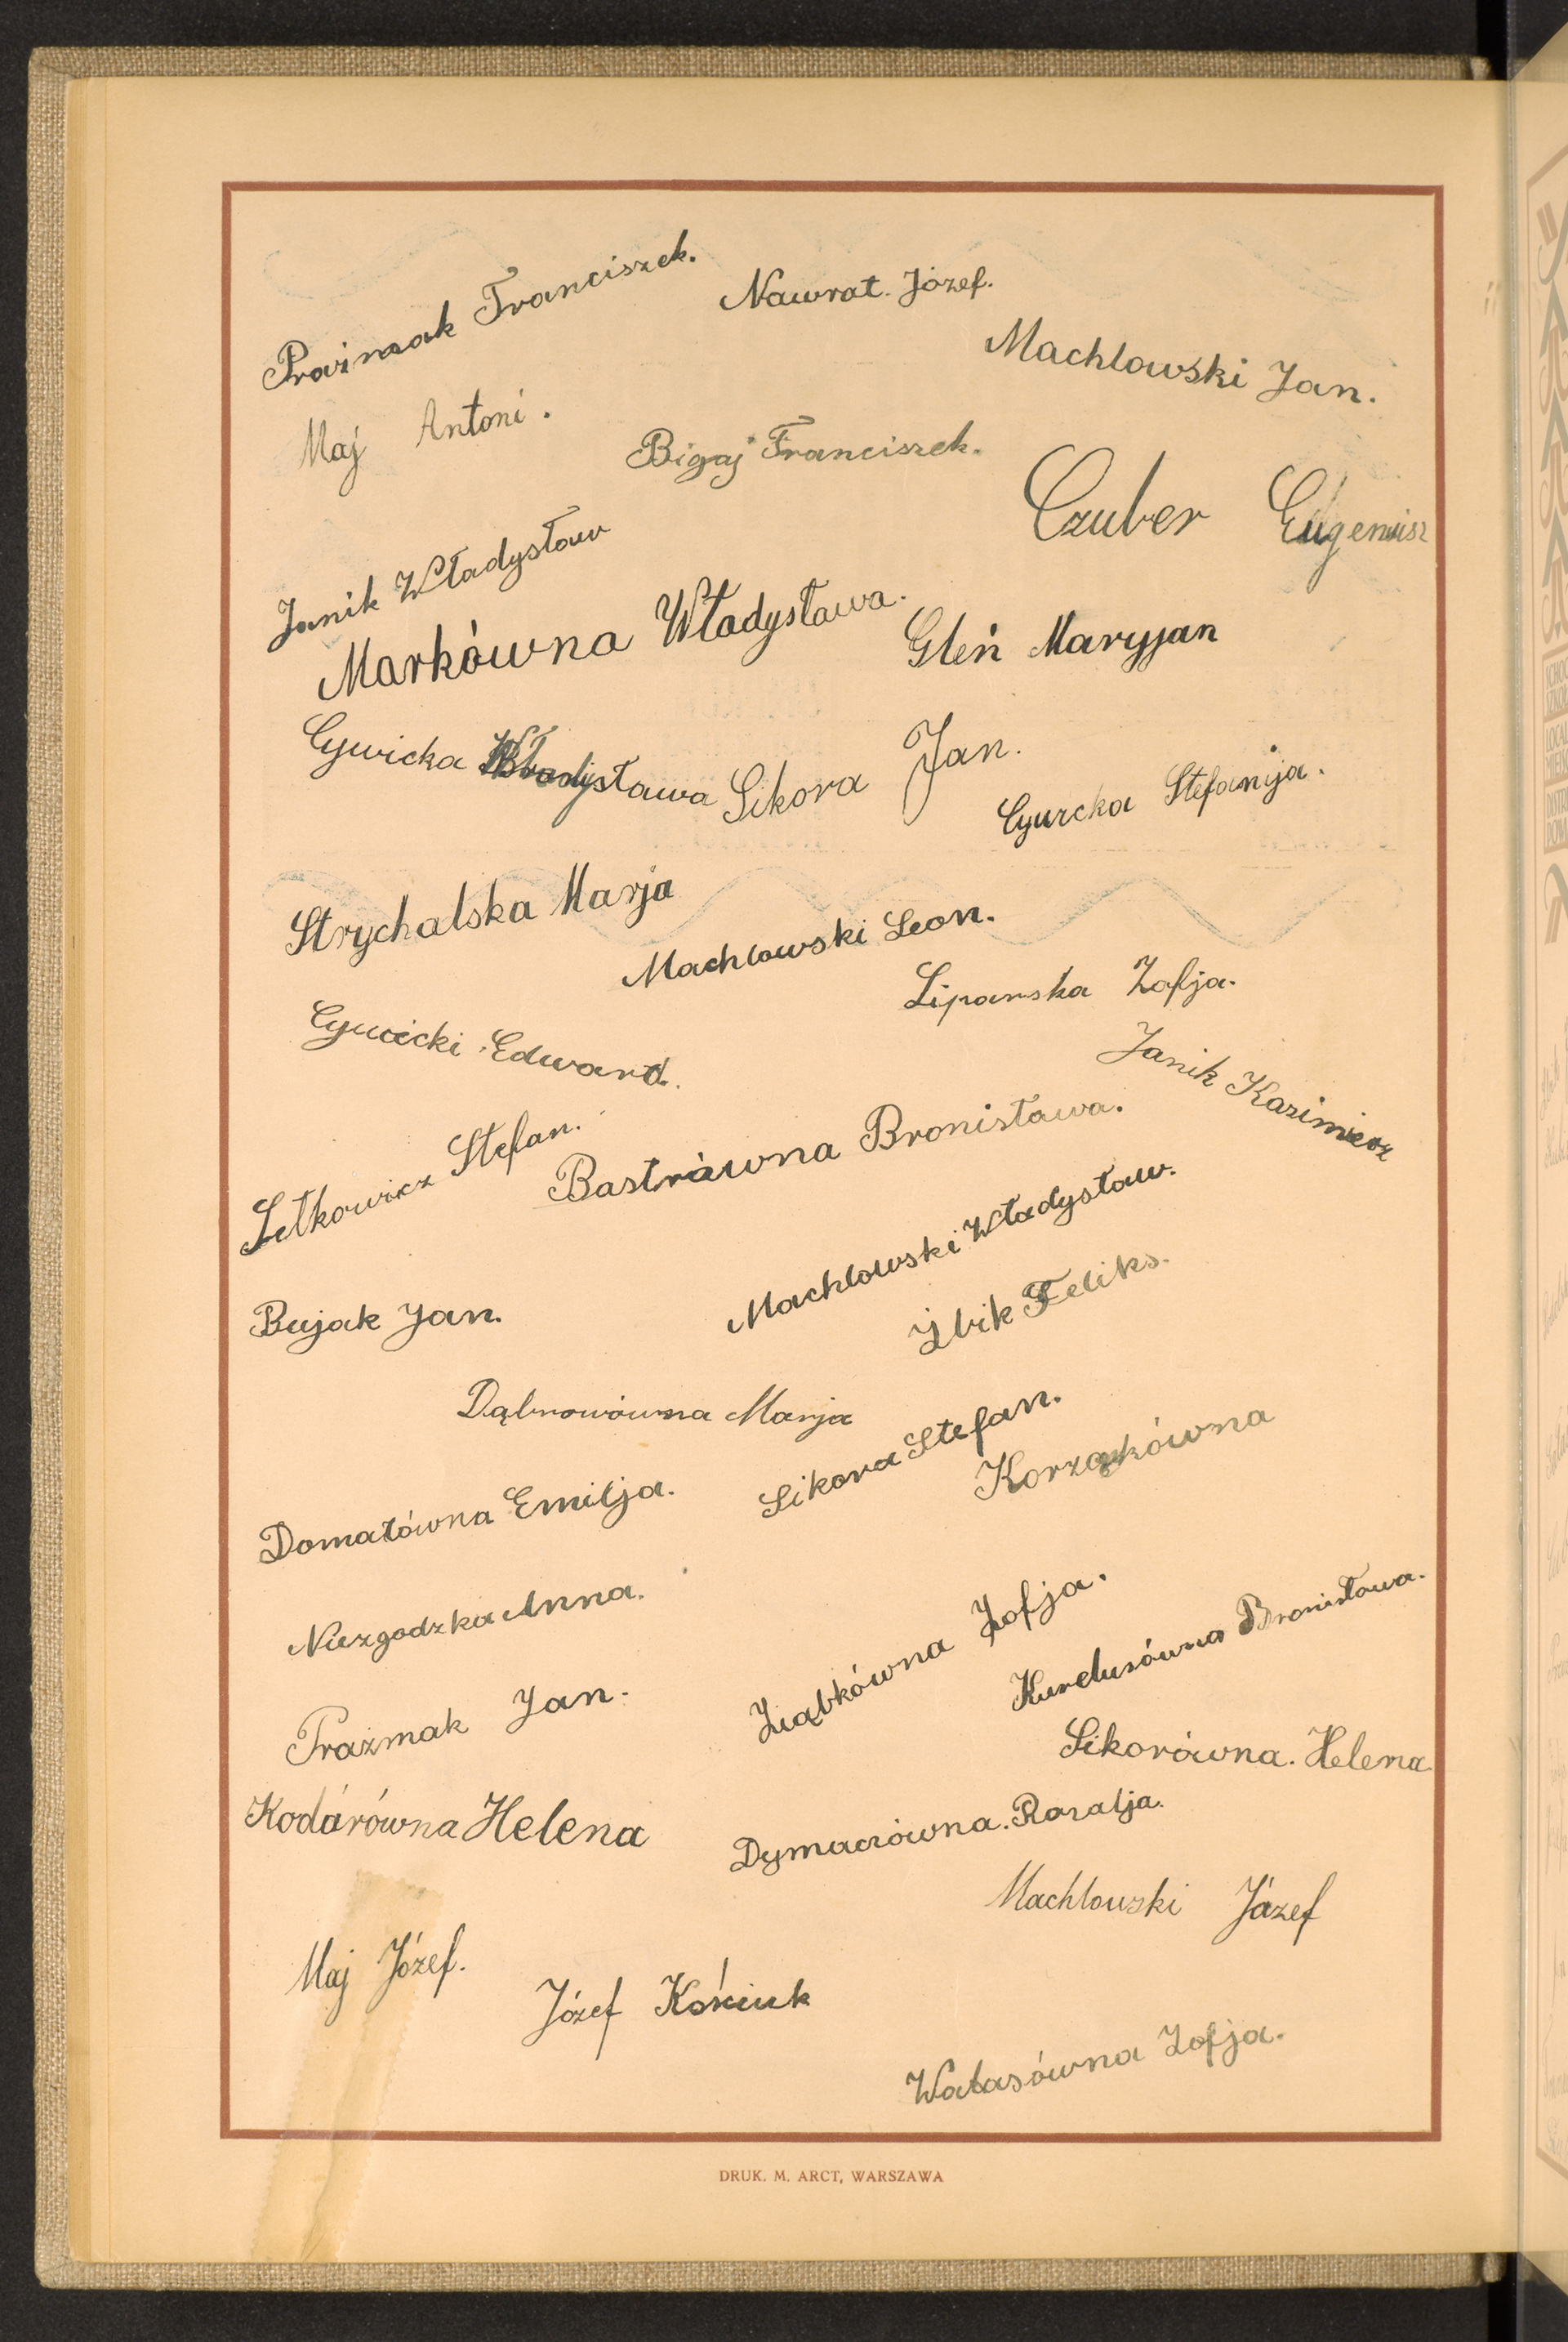 Prażmak Franciszek.
Nawrat. Józef.
Machlowski Jan.
Maj Antoni.
Bigaj Franciszek.
Czuber Eugeniusz
Janik Władysław
Markówna Władysława.
Gleń Maryjan
Cywicka Władysława
Sikora Jan.
Cywicka Stefanija.
Strychalska Marja
Machlowski Leon.
Liparska Zofja.
Cywicki Edward.
Janik Kazimierz
Letkowicz Stefan.
Bastrawna Bronisława.
Machlowski Władysław.
Bujak Jan.
Żbik Feliks.
Dąbrowówna Marja
Sikora Stefan.
Korzakówna
Domatówna Emilja.
Niezgodzka Anna.
Ziąbkówna Zofja.
Kurdusówna Bronisława.
Prażmak Jan.
Sikorówna. Helena
Kodárówna Helena
Dymaciówna. Rozalja.
Machlowski Józef
Maj Józef.
Józef Kościuk
Watasówna Zofja.
DRUK. M. ARCT, WARSZAWA